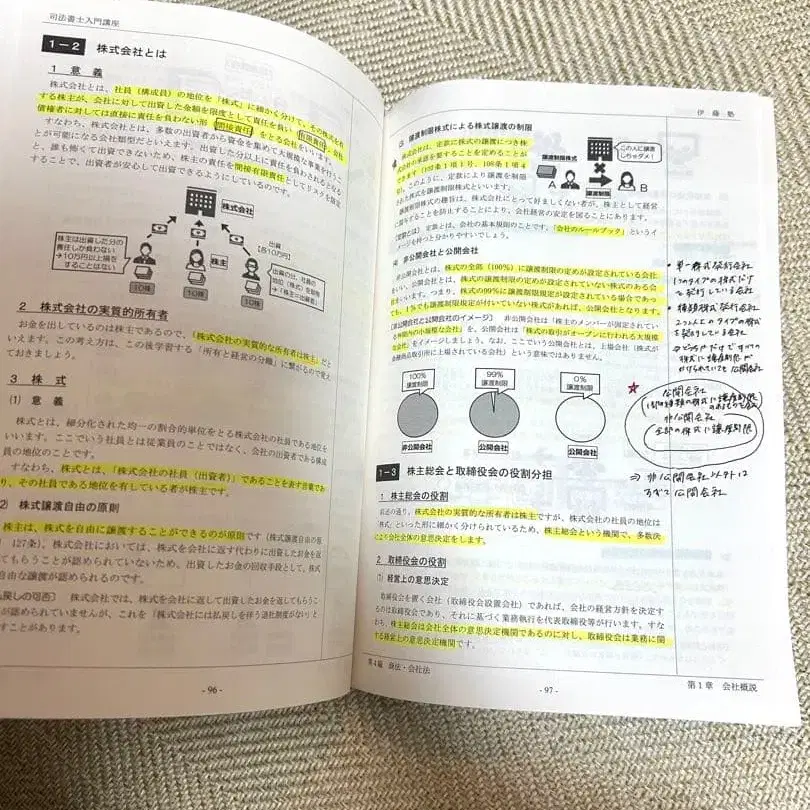 司法書士入門講座
1-2 株式会社とは
1 意義
株式会社とは、社員（構成員）の地位を「株式」に細かく分けて、その株式を有
する株主が、会社に対して出資した金額を限度として責任を負い（有限責任）、会社
債権者に対しては直接に責任を負わない形（間接責任）をとる会社をいいます。
すなわち、株式会社とは、多数の出資者から資金を集めて大規模な事業を行うこ
とが可能になる会社類型だといえます。出資した分以上に責任を負わされるとなる
と、誰も怖くて出資できないため、株主の責任を間接有限責任としてリスクを限定
することで、出資者が安心して出資できるようにしているのです。
株式会社
株主は出資した分の
責任しか負わない
→10万円以上損を
することはない
株主
出資
【各10万円】
出資のみ、社員の
地位（株式）を取得
「株主＝出資者」
10株
10株
10株
2 株式会社の実質的所有者
お金を出しているのは株主であるので、「株式会社の実質的な所有者は株主」だと
いえます。この考え方は、この後学習する「所有と経営の分離」に繋がるので覚え
ておきましょう。
3 株式
(1) 意義
株式とは、細分化された均一の割合的単位をとる株式会社の社員である地位を
いいます。ここでいう社員とは従業員のことではなく、会社の出資者である構成
員の地位のことです。
すなわち、株式とは、「株式会社の社員（出資者）」であることを表す言葉であ
り、その社員である地位を有している者が株主です。
2) 株式譲渡自由の原則
株主は、株式を自由に譲渡することができるのが原則です（株式譲渡自由の原
127条）。株式会社においては、株式を会社に返す代わりに出資したお金を返
てもらうことが認められていないため、出資したお金の回収手段として、株式
自由な譲渡が認められるのです。
払戻しの可否〕 株式会社では、株式を会社に返して出資したお金を返してもらうこ
が認められていませんが、これを「株式会社には払戻しを伴う退社制度がない」と
すことがあります。
- 96 -
伊藤塾
譲渡制限株式による株式譲渡の制限
株式会社は、定款に株式の譲渡につき株
式会社の承認を要することを定めることが
できます（107条1項1号、108条1項4
号）。このように、定款により譲渡を制限
された株式を譲渡制限株式といいます。
譲渡制限株式の趣旨は、株式会社にとって好ましくない者が、株主として経営
に関与することを防止することにより、会社経営の安定を図ることにあります。
定款とは、会社の基本規則のことです。「会社のルールブック」というイ
メージを持つと分かりやすいでしょう。
譲渡制限株式
この人に譲渡
しちゃダメ！
A
譲渡制限
B
非公開会社と公開会社
非公開会社とは、株式の全部（100%）に譲渡制限の定めが設定されている会社
をいいます。
います。つまり、株式の99%に譲渡制限規定が設定されている場合であっ
ても、1%でも譲渡制限規定が付いていない株式があれば、公開会社となります。
〔非公開会社と公開会社のイメージ〕 非公開会社は「株主のメンバーが固定されてい
る仲間内の小規模な会社」を、公開会社は「株式の取引がオープンに行われる大規模
な会社」をイメージしましょう。なお、ここでいう公開会社とは、上場会社（株式が
金融商品取引所に上場されている会社）という意味ではありません。
100%
譲渡制限
99%
譲渡制限
0%
譲渡制限
非公開会社
公開会社
公開会社
1-3 株主総会と取締役会の役割分担
1 株主総会の役割
前述の通り、株式会社の実質的な所有者は株主ですが、株式会社の社員の地位は
「株式」といった形に細かく分けられているため、株主総会という機関で、多数決
により会社全体の意思決定をします。
2 取締役会の役割
(1) 経営上の意思決定
取締役会を置く会社（取締役会設置会社）であれば、会社の経営方針を決定す
るのは取締役会であり、それに基づく業務執行を代表取締役等が行います。すな
わち、株主総会は会社全体の意思決定機関であるのに対し、取締役会は業務に関
する経営上の意思決定機関です。
第4編 商法・会社法
- 97 -
第1章 会社概説
・単一株式発行会社
1つのタイプの株式だけ
を発行している会社
・種類株式発行会社
2つ以上のタイプの株式
を発行している会社
公開会社
非公開会社
全部の株式に譲渡制限
⇒ 非公開会社以外は
すべて公開会社